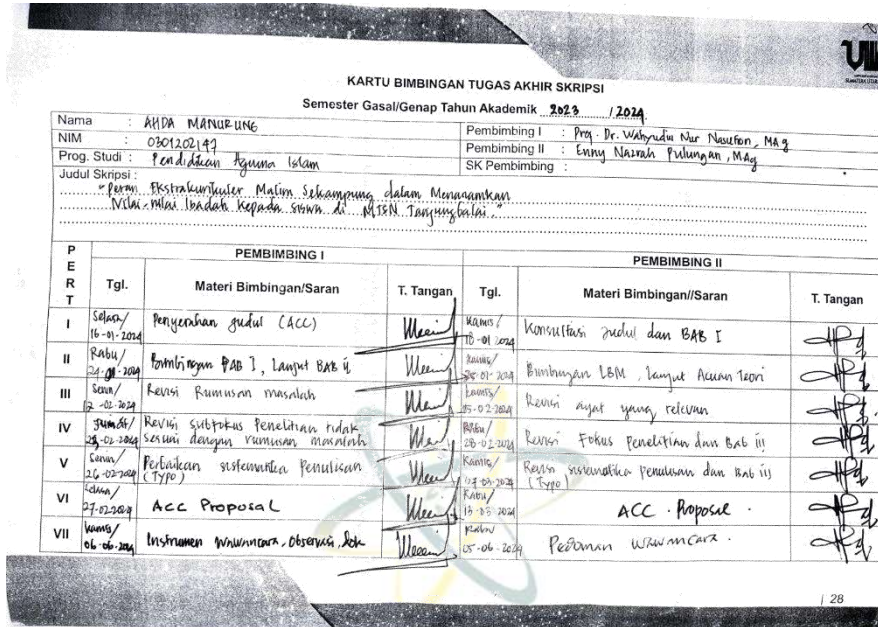 KARTU BIMBINGAN TUGAS AKHIR SKRIPSI
Semester Gasal/Genap Tahun Akademik 2023 / 2024
Nama : AHDA MANURUNG
NIM : 0301202147
Prog. Studi : Pendidikan Agama Islam
Pembimbing I : Prof. Dr. Wahyudin Nur Nasution, MAg
Pembimbing II : Enny Nazrah Pulungan, MAg
SK Pembimbing :
Judul Skripsi :
"Peran Ekstrakurikuler Malim Sekampung dalam Menanamkan
Nilai-nilai Ibadah Kepada Siswa di MTSN Tanjungbalai."
PERT
PEMBIMBING I
PEMBIMBING II
Tgl. Materi Bimbingan/Saran T. Tangan Tgl. Materi Bimbingan//Saran T. Tangan
I Selasa/ 16-01-2024 Penyerahan judul (ACC) Kamis/ 18-01 2024 Konsultasi judul dan BAB I
II Rabu/ 24-01-2024 Bimbingan BAB I, Lanjut BAB ii Kamis/ -01-2024 Bimbingan LBM, Lanjut Acuan Teori
III Senin/ 12-02-2024 Revisi Rumusan masalah Kamis/ 15-02-2024 Revisi ayat yang relevan
IV Jumat/ 23-02-2024 Revisi subfokus Penelitian tidak sesuai dengan rumusan masalah Rabu/ 28-02-2024 Revisi Fokus Penelitian dan Bab iii
V Senin/ 26-02-2024 Perbaikan sistematika Penulisan (Typo) Kamis/ 07-03-2024 Revisi sistematika penulisan dan Bab iii (Typo)
VI Selasa/ 27-02-2024 ACC Proposal Rabu/ 13-03-2024 ACC. Proposal.
VII Kamis/ 06-06-2024 Instrumen Wawancara, Observasi, dok Rabu/ 05-06-2024 Pedoman wawancara.
| 28